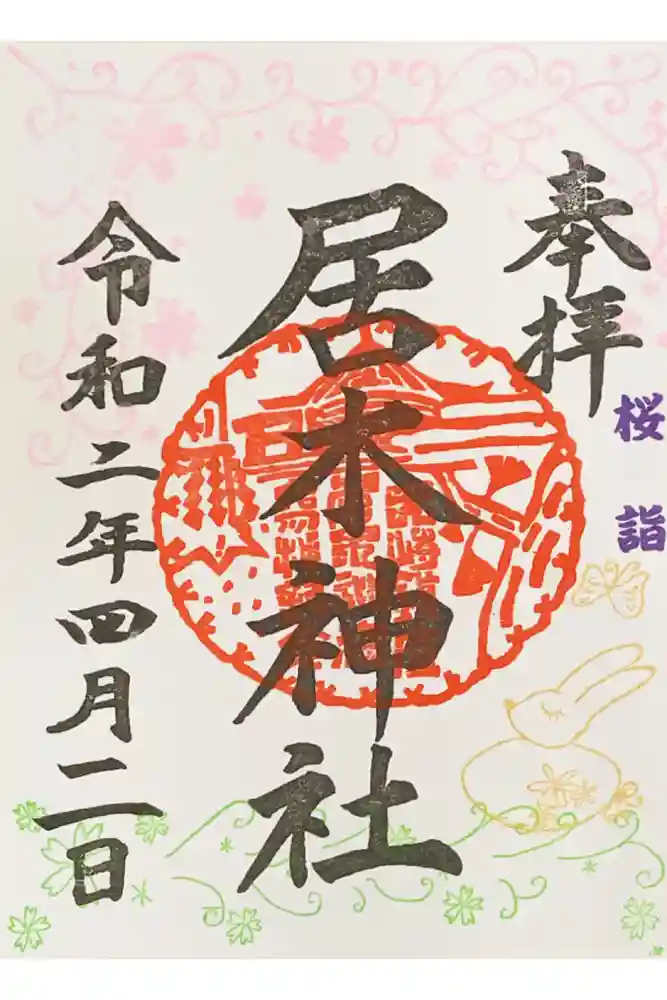 奉拝
桜詣
居木神社
令和二年四月二日